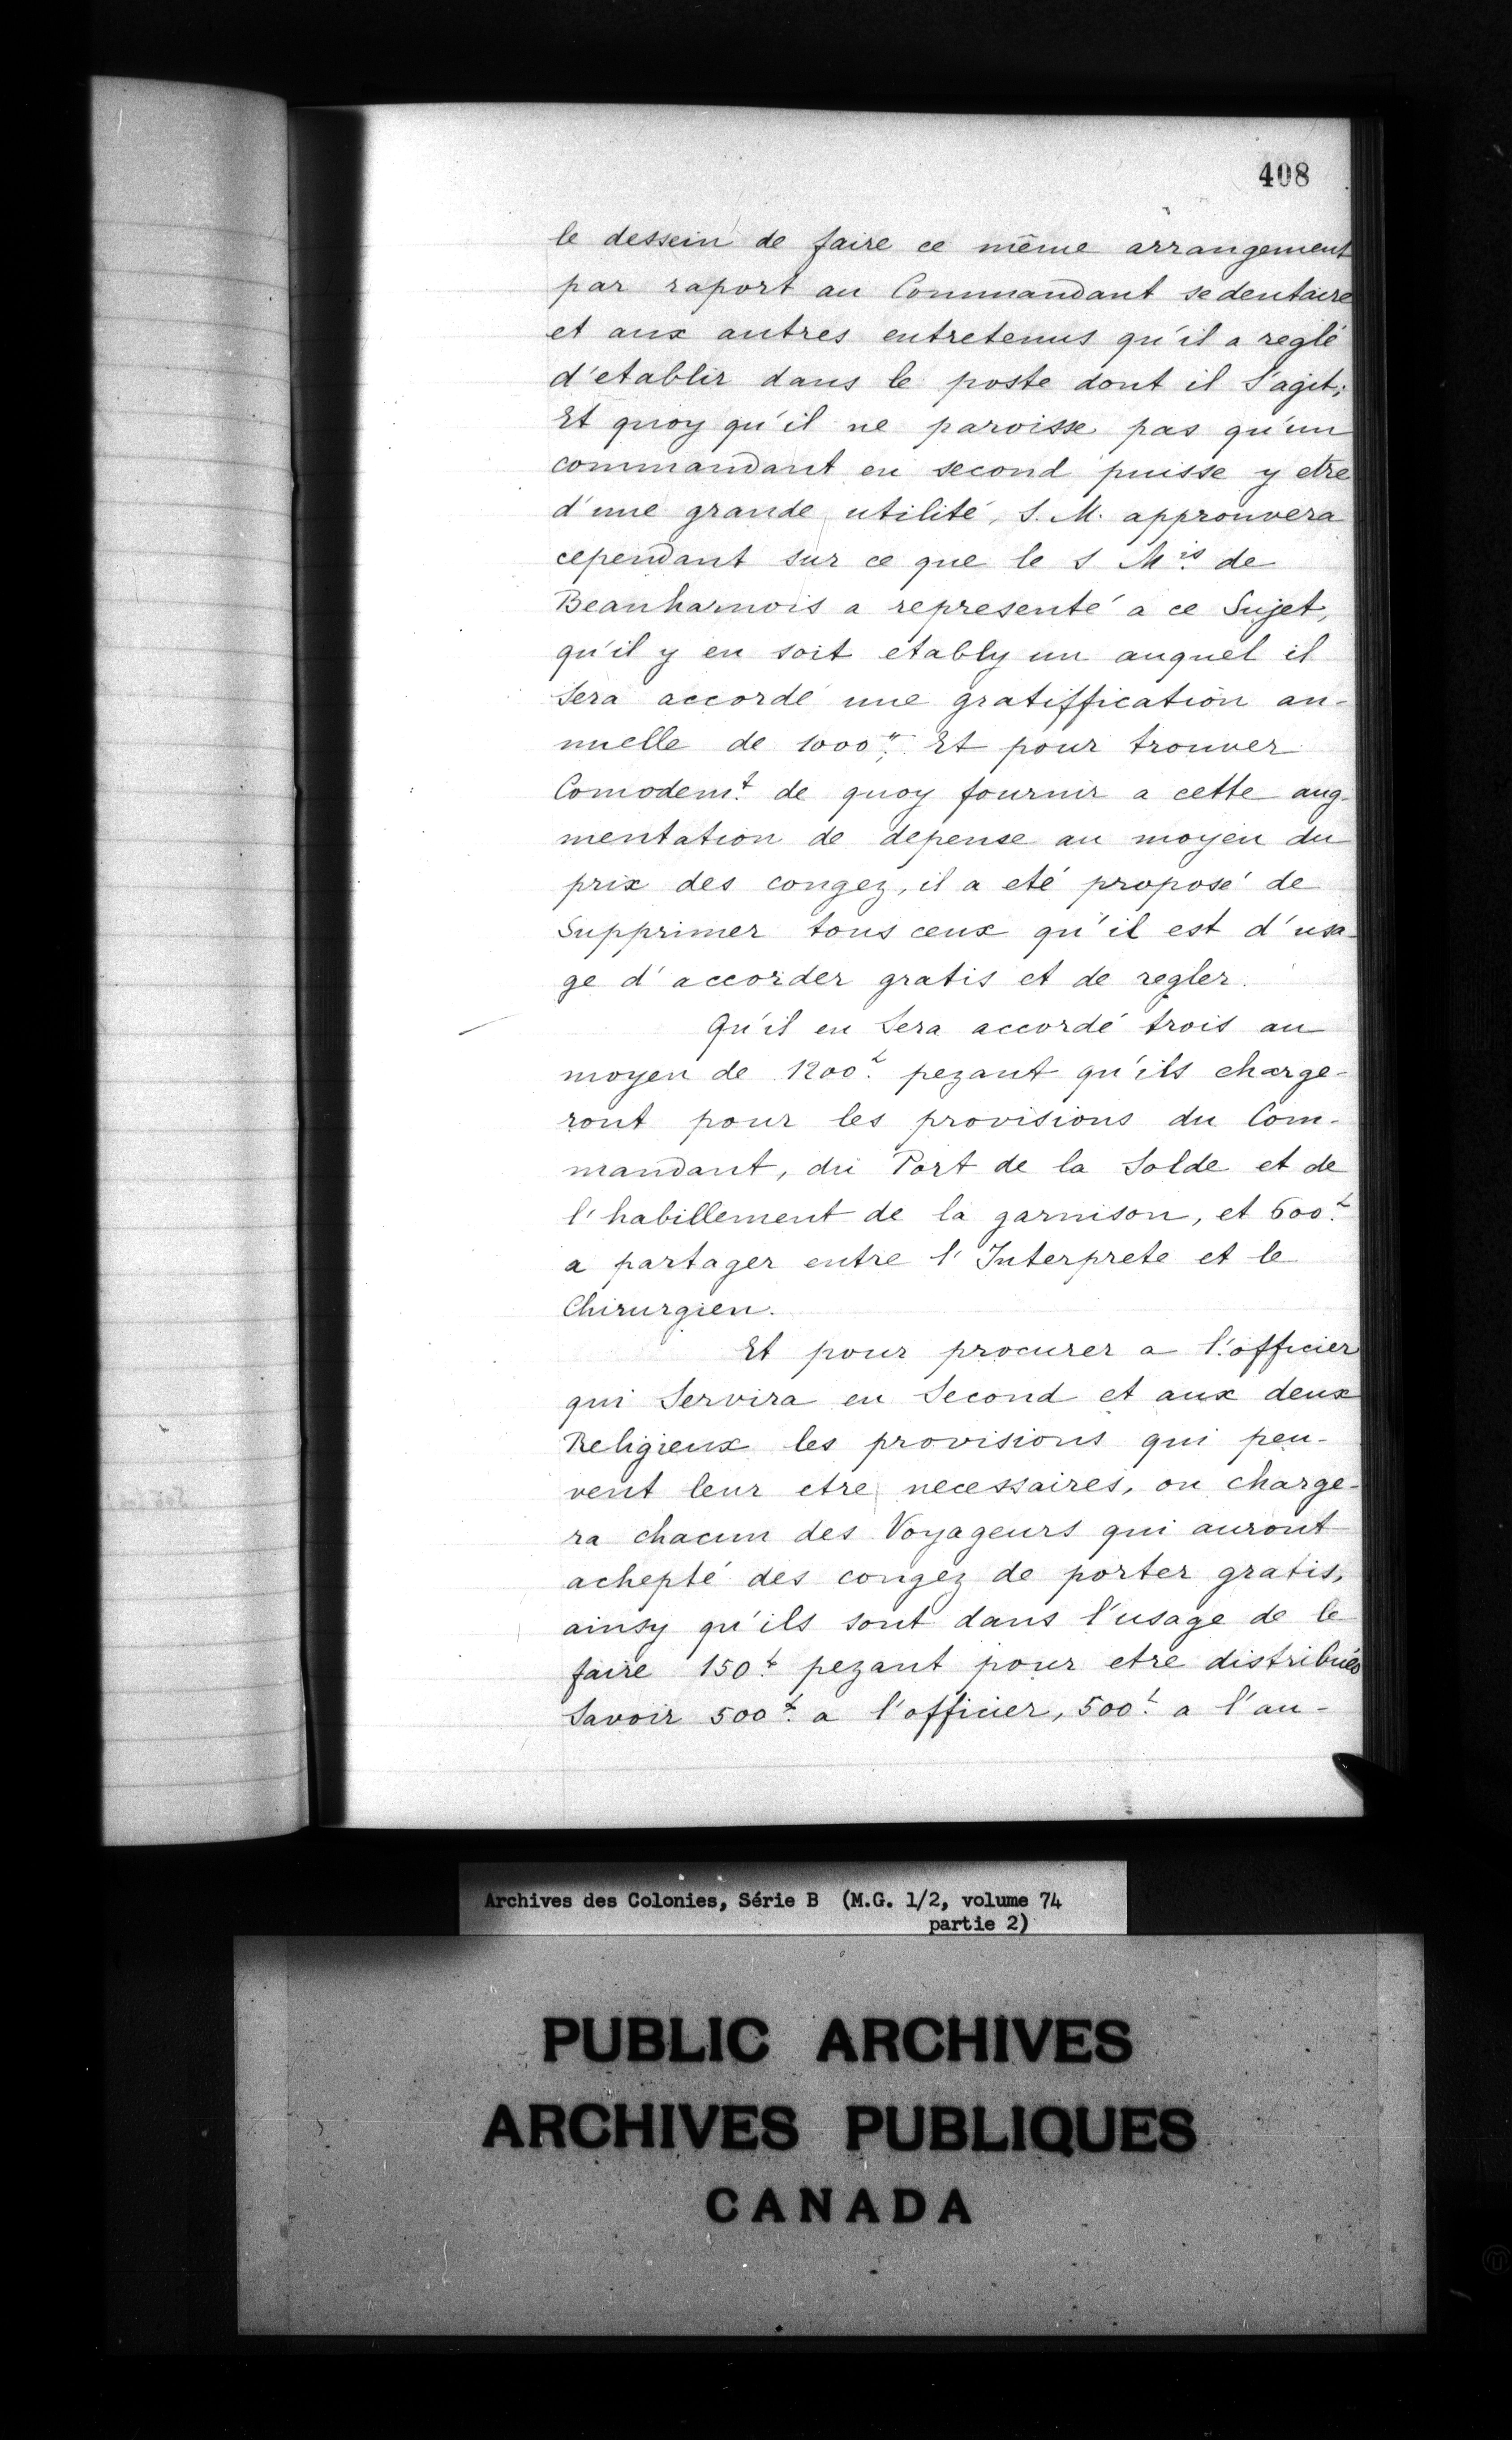 408
le dessein de faire ce même arrangement
par raport au Commandant sedentaire
et aux autres entretenus qu'il a reglé
d'etablir dans le poste dont il S'agit;
Et quoy qu'il ne paroisse pas qu'un
commandant en second puisse y etre
d'une grande utilité, S. M. approuvera
cependant sur ce que le S Mis de
Beauharnois a representé a ce Sujet,
qu'il y en soit etably un auquel il
Sera accordé une gratiffication an-
nuelle de 1000"; Et pour trouver
Comodemt. de quoy fournir a cette aug-
mentation de depense au moyen du
prix des congez, il a eté proposé de
Supprimer tous ceux qu'il est d'usa-
ge d'accorder gratis et de regler.
Qu'il en Sera accordé trois au
moyen de 1200L pezant qu'ils charge-
ront pour les provisions du Com-
mandant, du Port de la Solde et de
l'habillement de la garnison, et 600L
a partager entre l'Interprete et le
Chirurgien.
Et pour procurer a l'officier
qui Servira en Second et aux deux
Religieux les provisions qui peu-
vent leur etre necessaires, on charge-
ra chacun des Voyageurs qui auront
achepté des congez de porter gratis,
ainsy qu'ils sont dans l'usage de le
faire 150L pezant pour etre distribués
Savoir 500L a l'officier, 500L a l'au-
Archives des Colonies, Série B (M.G. 1/2, volume 74
partie 2)
PUBLIC ARCHIVES
ARCHIVES PUBLIQUES
CANADA